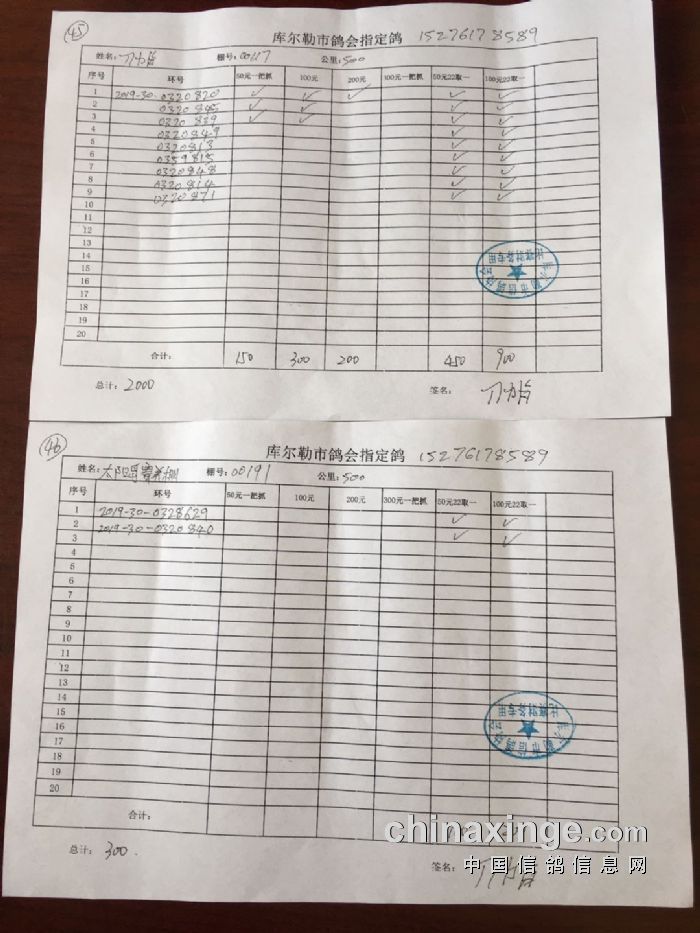 45 库尔勒市鸽会指定鸽 15276178589
姓名: 棚号: 00117 公里: 500
序号 环号 50元一把抓 100元 200元 100元一把抓 50元22取一 100元22取一
1 2019-30-0320820 ✓ ✓ ✓ ✓ ✓
2 0320845 ✓ ✓ ✓ ✓
3 0320839 ✓ ✓ ✓ ✓
4 0320849 ✓ ✓
5 0320813 ✓ ✓
6 0359815 ✓ ✓
7 0320848 ✓ ✓
8 0320814 ✓ ✓
9 0320871 ✓ ✓
10
11
12
13
14
15
16
17
18
19
20
合计: 150 300 200 450 900
总计: 2000 签名:
46 库尔勒市鸽会指定鸽 15276178589
姓名: 太阳岛赛养棚 棚号: 00191 公里: 500
序号 环号 50元一把抓 100元 200元 300元一把抓 50元22取一 100元22取一
1 2019-30-0328629 ✓ ✓
2 2019-30-0320840 ✓ ✓
3
4
5
6
7
8
9
10
11
12
13
14
15
16
17
18
19
20
合计:
总计: 300. 签名:
库尔勒市信鸽协会
比赛财务专用
chinaxinge.com
中国信鸽信息网